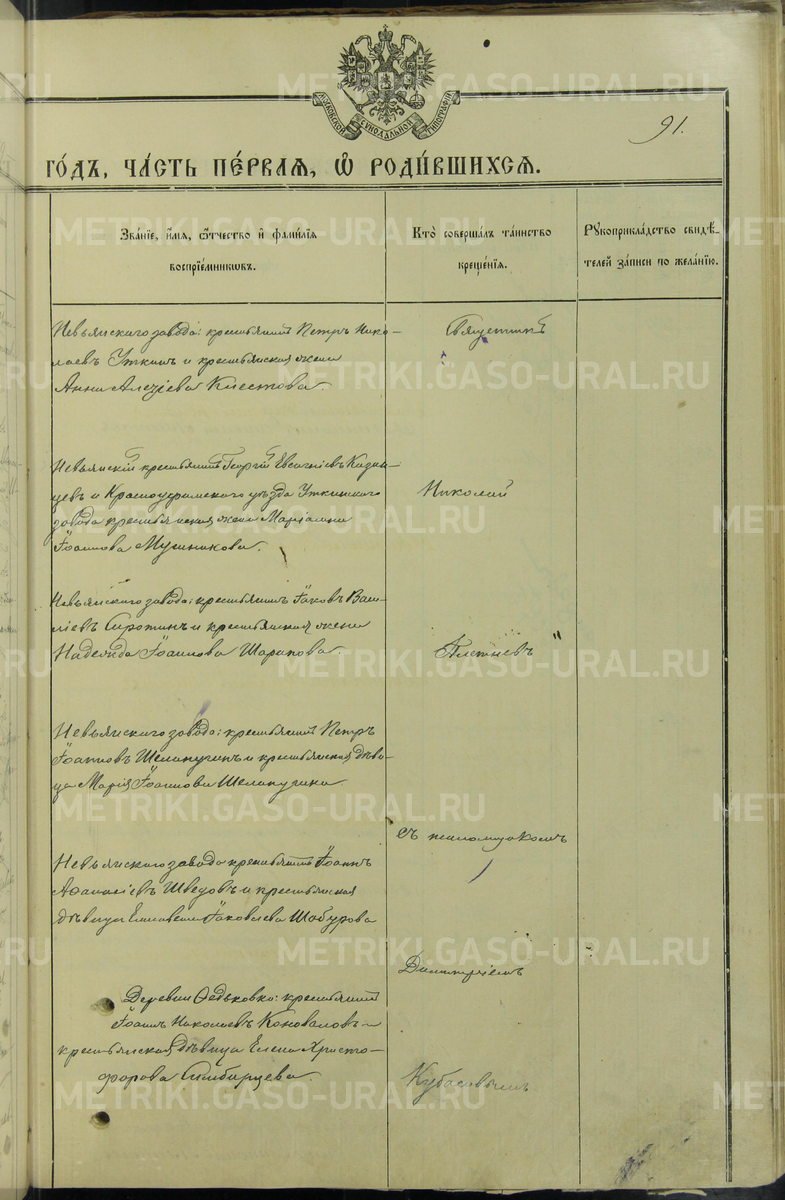 МОСКОВСКОЙ СѴНОДАЛЬНОЙ ТИПОГРАФІИ
91.
ГО́ДЪ, ЧА́СТЬ ПЕ́РВАѦ, Ѡ҆ РОДИ́ВШИХСѦ.
Зва́нїе, и҆́мѧ, ѻ҆́тчество и҆ фами́лїѧ
воспрїе́мникѡвъ.
Кто̀ соверша́лъ та́инство
креще́нїѧ.
Рꙋкоприкла́дство свидѣ-
телей за́писи по жела́нїю.
Невьянскаго завода: крестьянинъ Петръ Нико-
лаевъ Уткинъ и крестьянская жена
Анна Алексѣева
Священникъ
Невьянскій крестьянинъ Георгій Евсигніевъ Казан-
цевъ и Красноуфимскаго уѣзда Уткинскаго
завода крестьянская жена Маріамна
Іоаннова
Николай
Невьянскаго завода: крестьянинъ Іаковъ Васи-
ліевъ Сиротинъ и крестьянская жена
Надежда Іоаннова Шарапова.
Плетневъ
Невьянскаго завода: крестьянинъ Петръ
Іоанновъ Шелапугинъ и крестьянская дѣви-
ца Марія Іоаннова Шелапугина.
съ псаломщикомъ
Невьянскаго завода крестьянинъ Іоаннъ
Аѳанасіевъ Шведовъ и крестьянская
дѣвица Елисавета Іаковлева Шабурова
Димитріемъ
Деревни Федьковки: крестьянинъ
Іоаннъ Николаевъ Коноваловъ и
крестьянская дѣвица Елена Христо-
форова Симбирцева.
Кубасовымъ
METRIKI.GASO-URAL.RU